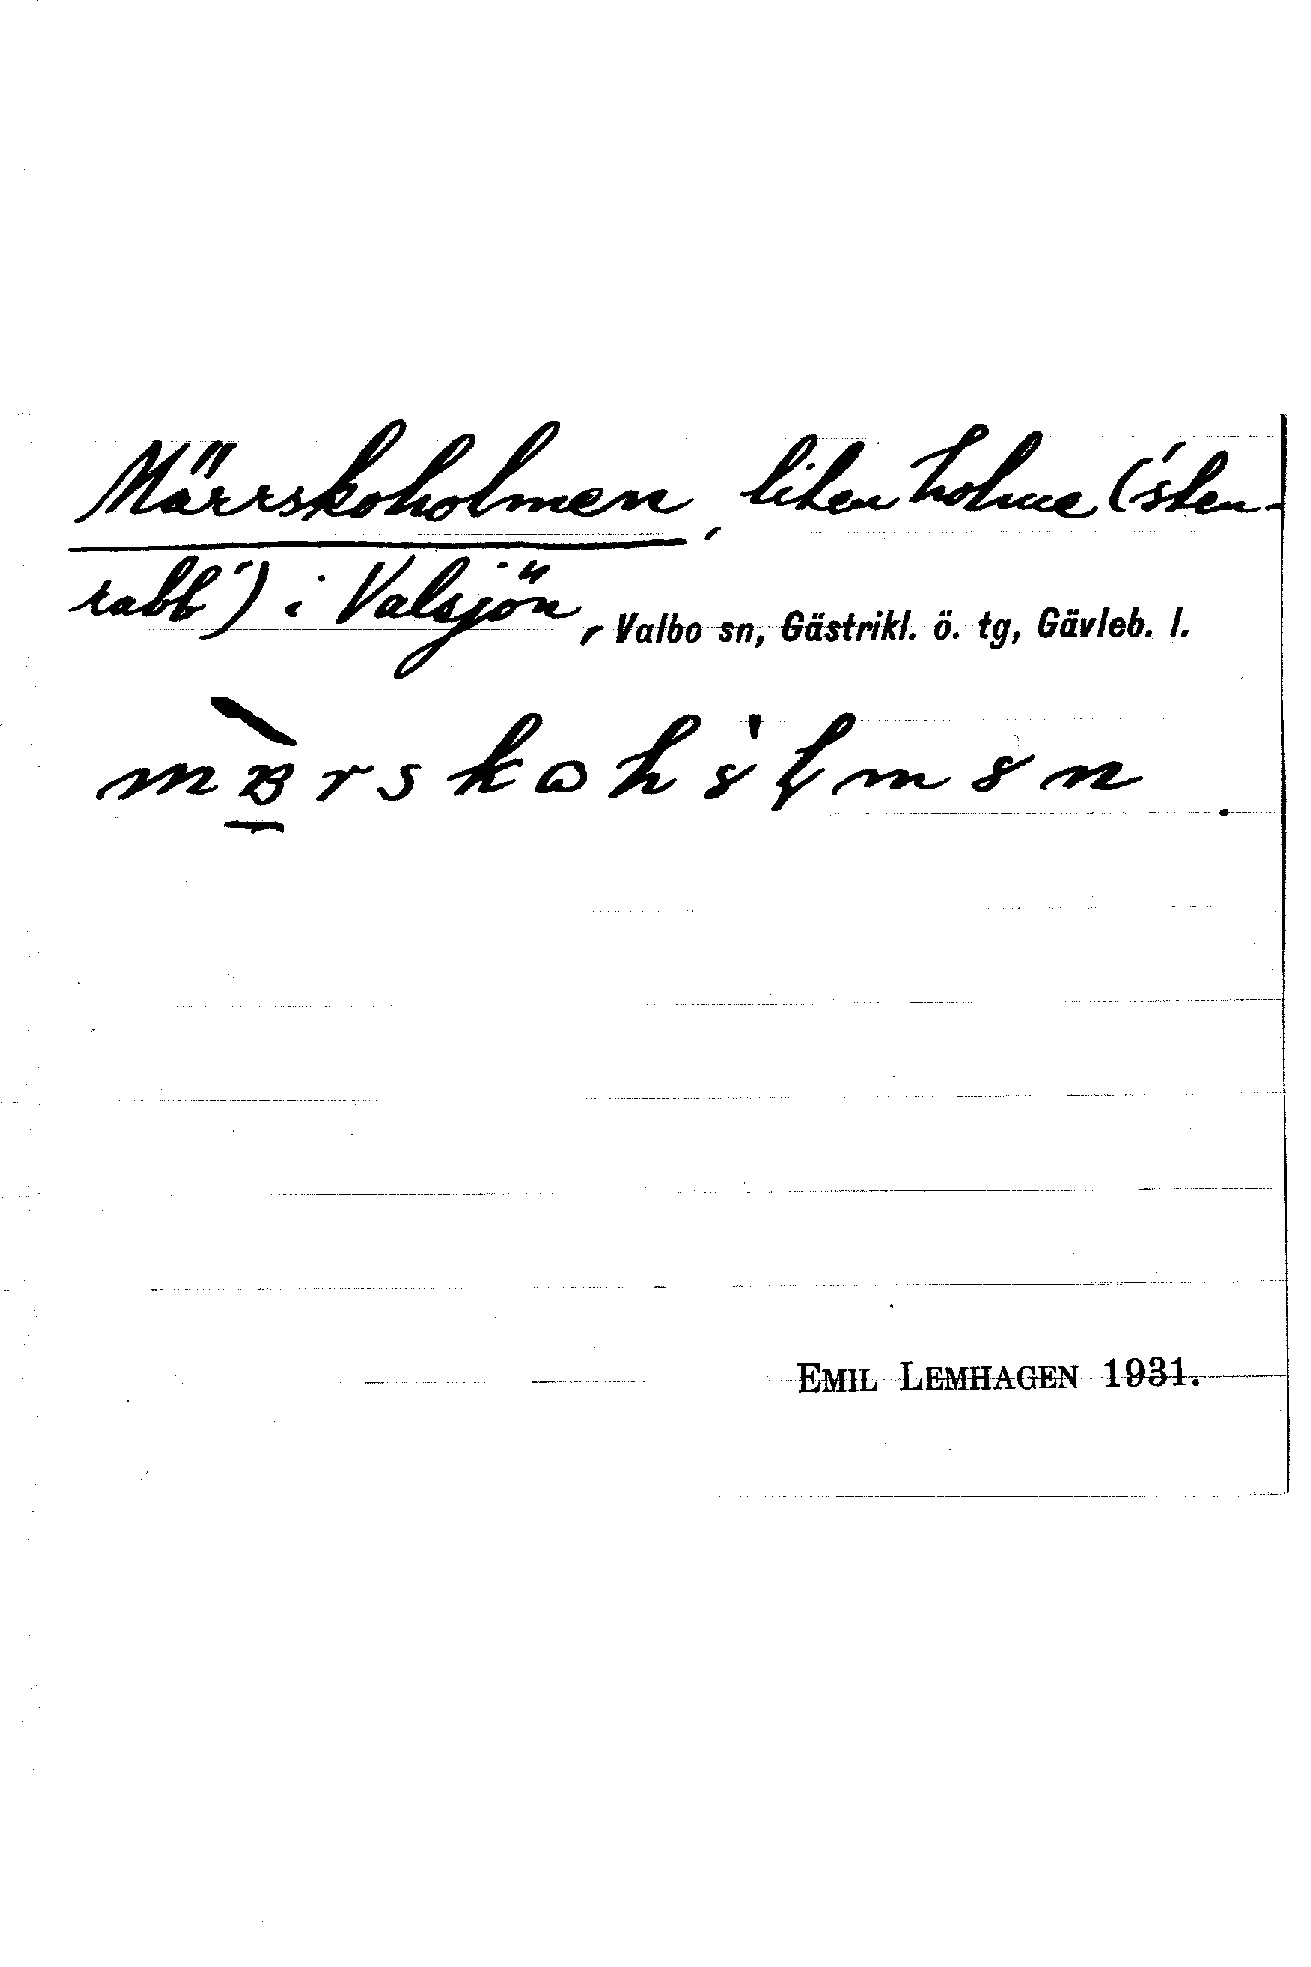 Märrskoholmen, liten holme ('sten-
rabb') i Valsjön, Valbo sn, Gästrikl. ö. tg, Gävleb. l.
EMIL LEMHAGEN 1931.